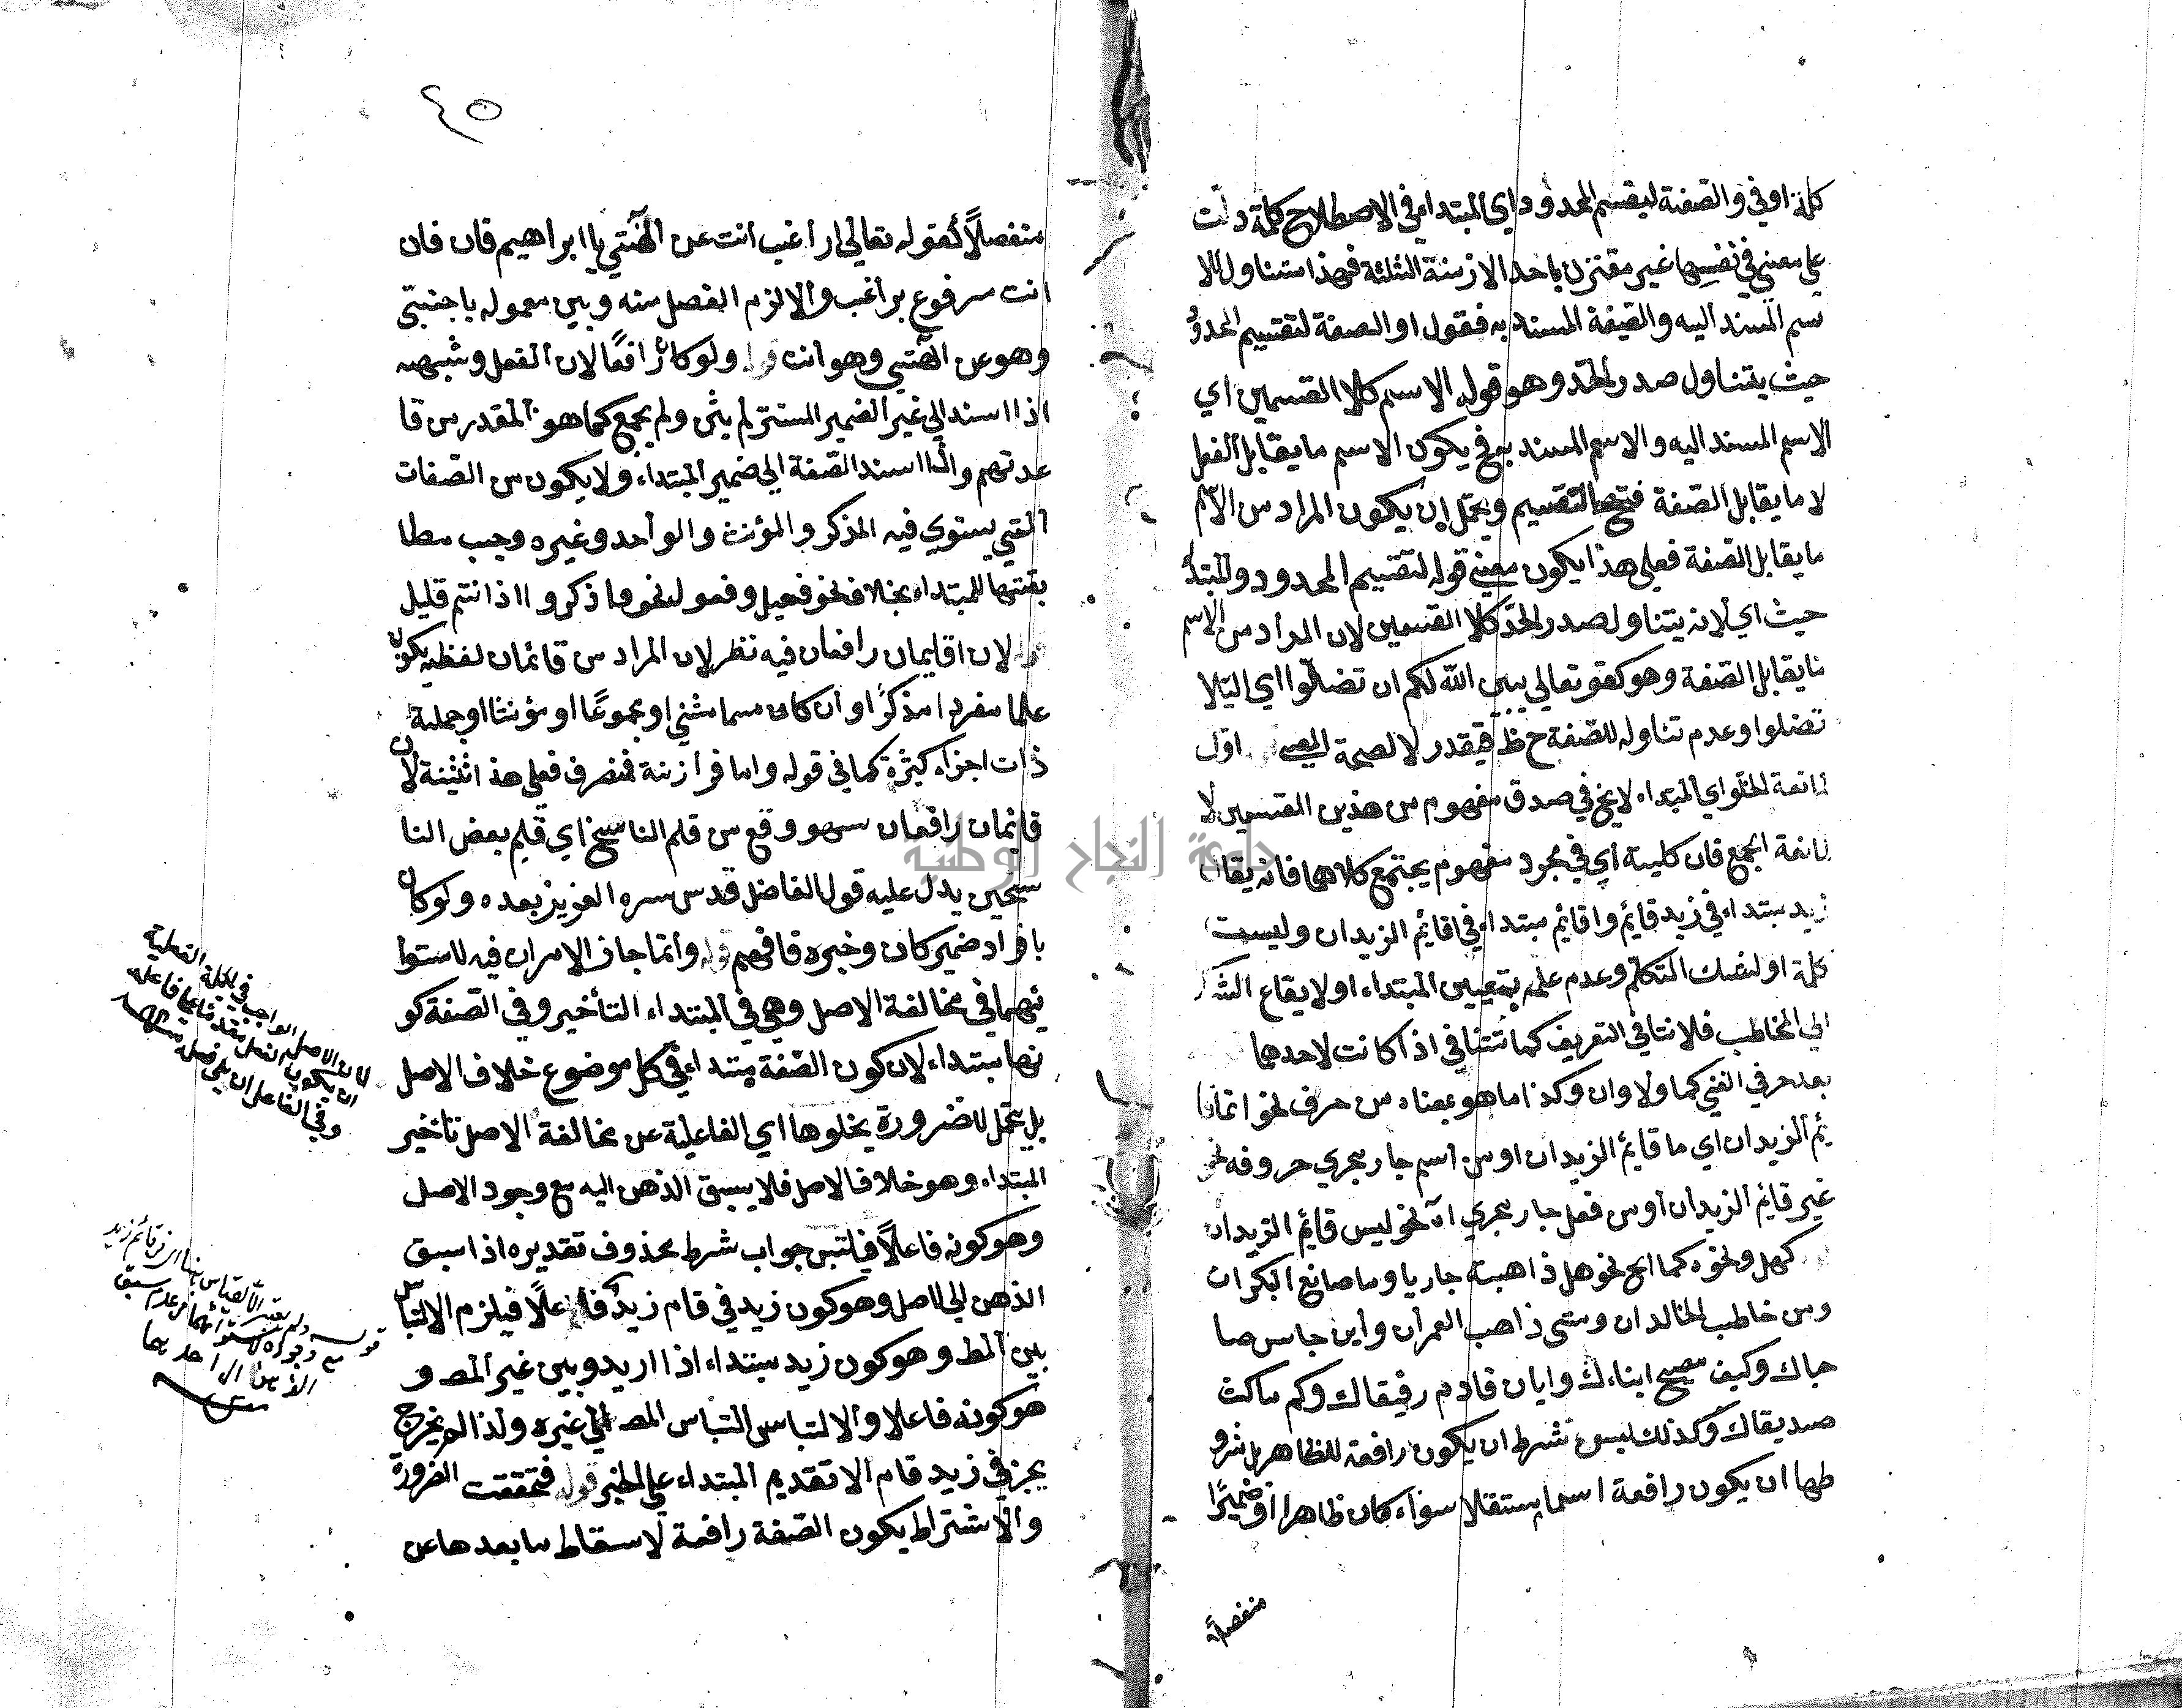 كلمة او في والصفة ليقسم المحدود اي المبتداء في الاصطلاح كلمة دلت
علي معني في نفسها غير مقترن باحد الازمنة الثلثة فهذا متناول للا
سم المسند اليه والصفة المسند به فقول او الصفة لتقسيم المحدود
حيث يتناول صدر الحد وهو قوله الاسم كلا القسمين اي
الاسم المسند اليه والاسم المسند به فح يكون الاسم ما يقابل الفعل
لا ما يقابل الصفة فتح التقسيم ويحتمل ان يكون المراد من الاسم
ما يقابل الصفة فعلي هذا يكون معني قوله لتقسيم المحدود والمبتدا
حيث اي لانه يتناول صدر الحد كلا القسمين لان المراد من الاسم
ما يقابل الصفة وهو كقو تعالي يبين الله لكم ان تضلوا اي ليلا
تضلوا وعدم تناوله للصفة ح ظ فيقدر لا لصحة المعني اول
لمانعة الخلو اي المبتداء لا يخ في صدق مفهوم من هذين القسمين لا
لمانعة الجمع فان كليته اي في مجرد مفهوم يجتمع كلاهما فانه يقال
زيد مبتداء في زيد قايم واقايم مبتداء في اقايم الزيدان وليست
كلمة او لشك المتكلم وعدم علمه بتعيين المبتداء او لايقاع الشك
الي المخاطب فلا تنافي التعريف كما تتنافي اذا كانت لاحدهما
بعد حرفي النفي كما ولا وان وكذا ما هو بمعناه من حرف نحو انما قا
يم الزيدان اي ما قايم الزيدان او من اسم جار مجري حروفه نحو
غير قايم الزيدان او من فعل جار مجري ان نحو ليس قايم الزيدان
كهل ونحوه كما الخ نحو هل ذاهبة جاريا وما صانع البكران
ومن خاطب الخالدان ومتي ذاهب العمران واين جالس صا
حباك وكيف مصبح ابناءك وايان قادم رفيقاك وكم ماكث
صديقاك وكذلك ليس شرط ان يكون رافعة للظاهر بل شرو
طها ان يكون رافعة اسما مستقلا سواء كان ظاهرا او ضميرًا
منفصلًا
٤٥
منفصلًا كقوله تعالي اراغب انت عن الهتي يا ابراهيم فان فان
انت مرفوع براغب والا لزم الفصل منه وبين معموله باجنبي
وهو عن الهتي وهو انت قوله ولو كان رافعًا لان الفعل وشبهه
اذا اسند الي غير الضمير المستتر لم يثن ولم يجمع كما هو المقدر من قا
عدتهم واذا اسند الصفة الي ضمير المبتداء ولا يكون من الصفات
التي يستوي فيه المذكر والمؤنث والواحد وغيره وجب مطا
بقتها للمبتداء بخلاف نحو فعيل وفعول نحو واذكروا اذ انتم قليل
قوله لان اقايمان رافعان فيه نظر لان المراد من قائمان لفظه يكون
علما مفردا مذكرًا وان كان مسما مثني او مجموعًا او مؤنثا او جملة
ذات اجزاء كثيرة كما في قوله واما فرازنة فمنصرف فعلي هذا تثنية لان
قائمان رافعان سهو وقع من قلم الناسخ اي قلم بعض النا
سخين يدل عليه قول الفاضل قدس سره العزيز بعده ولو كان
بافراد ضمير كان وخبره فافهم قوله وانما جاز الامران فيه لاستوا
ئهما في مخالفة الاصل وهي في المبتداء التأخير وفي الصفة كو
نها مبتداء لان كون الصفة مبتداء في كل موضوع خلاف الاصل
بل يحتمل للضرورة بخلوها اي الفاعلية عن مخالفة الاصل تأخير
المبتداء وهو خلاف الاصل فلا يسبق الذهن اليه مع وجود الاصل
وهو كونه فاعلًا فيلتبس جواب شرط محذوف تقديره اذا سبق
الذهن الي الاصل وهو كون زيد في قام زيد فاعلًا فيلزم الالتباس
بين المط وهو كون زيد مبتداء اذا اريد وبين غير المط و
هو كونه فاعلا والالتباس التباس المط الي غيره ولذا لم يخرج
يجز في زيد قام الا تقديم المبتداء علي الخبر قوله فتحققت الضرورة
والاشتراط يكون الصفة رافعة لاسقاط ما بعدها عن
في الجملة الفعلية